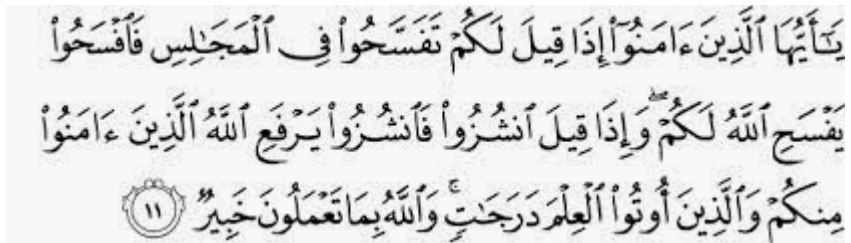 يَـٰٓأَيُّهَا ٱلَّذِينَ ءَامَنُوٓا۟ إِذَا قِيلَ لَكُمْ تَفَسَّحُوا۟ فِى ٱلْمَجَـٰلِسِ فَٱفْسَحُوا۟
يَفْسَحِ ٱللَّهُ لَكُمْ ۖ وَإِذَا قِيلَ ٱنشُزُوا۟ فَٱنشُزُوا۟ يَرْفَعِ ٱللَّهُ ٱلَّذِينَ ءَامَنُوا۟
مِنكُمْ وَٱلَّذِينَ أُوتُوا۟ ٱلْعِلْمَ دَرَجَـٰتٍ ۚ وَٱللَّهُ بِمَا تَعْمَلُونَ خَبِيرٌ ١١